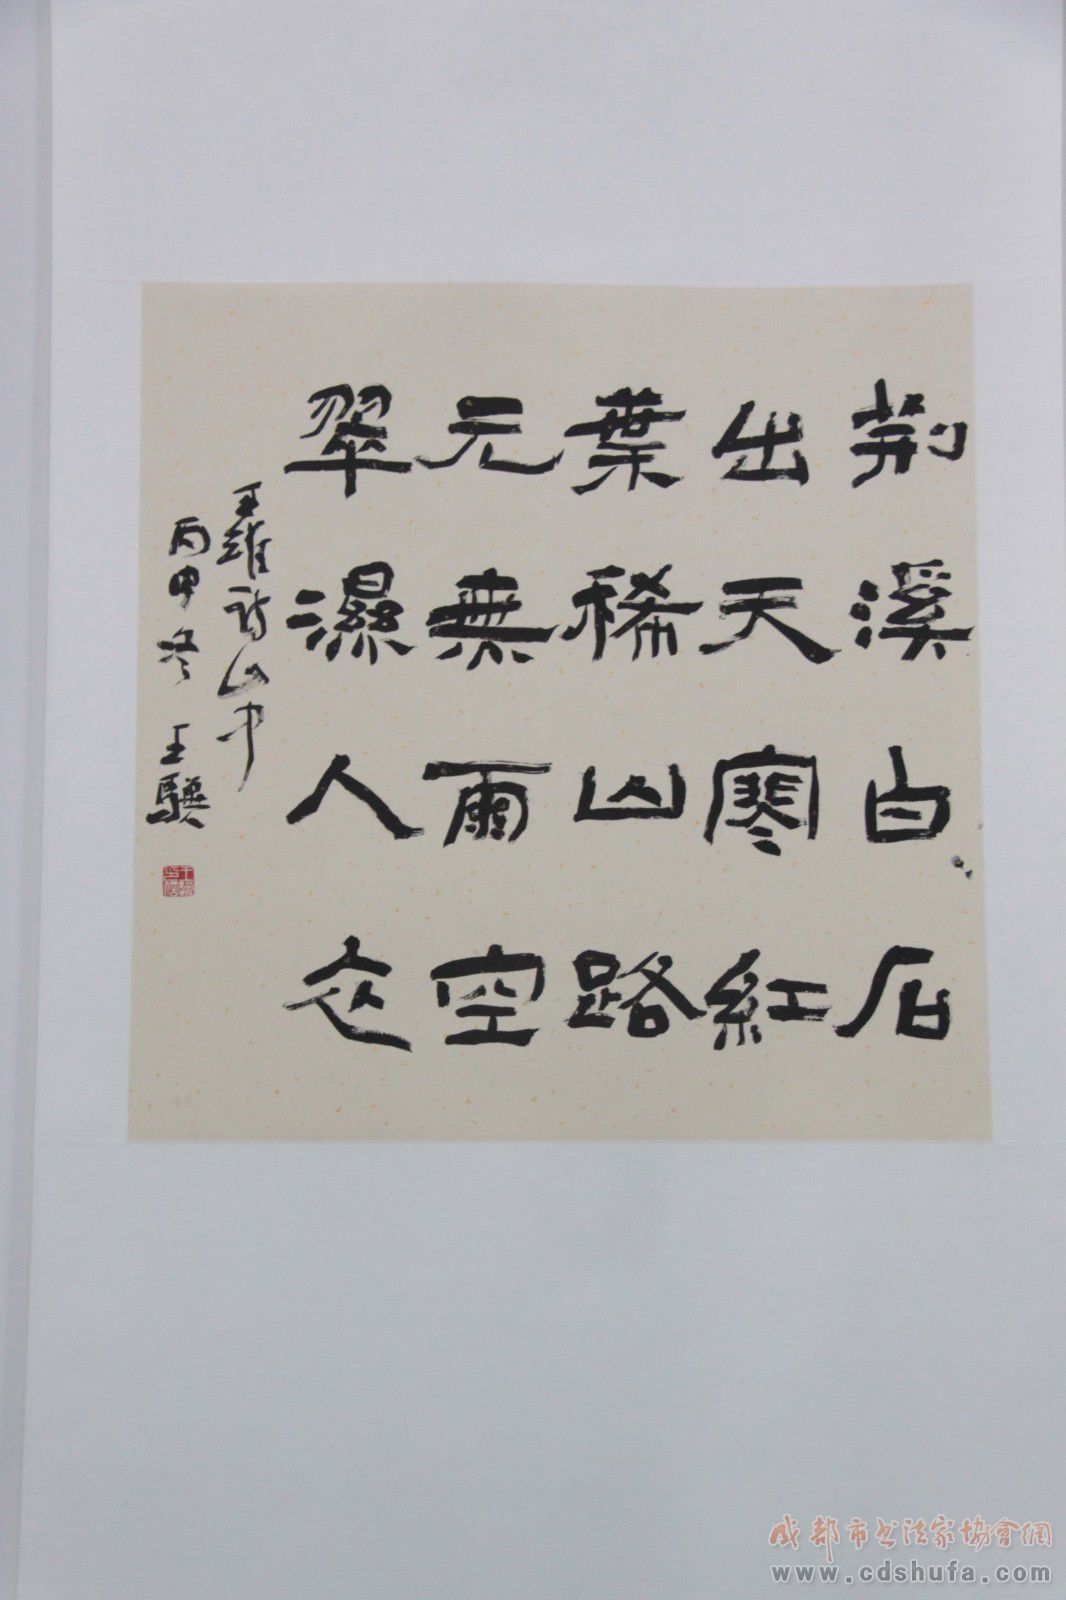 荆溪白石
出天寒紅
葉稀山路
元無雨空
翠濕人衣
王維詩山中
丙申冬 王
成都市书法家協會網
www.cdshufa.com